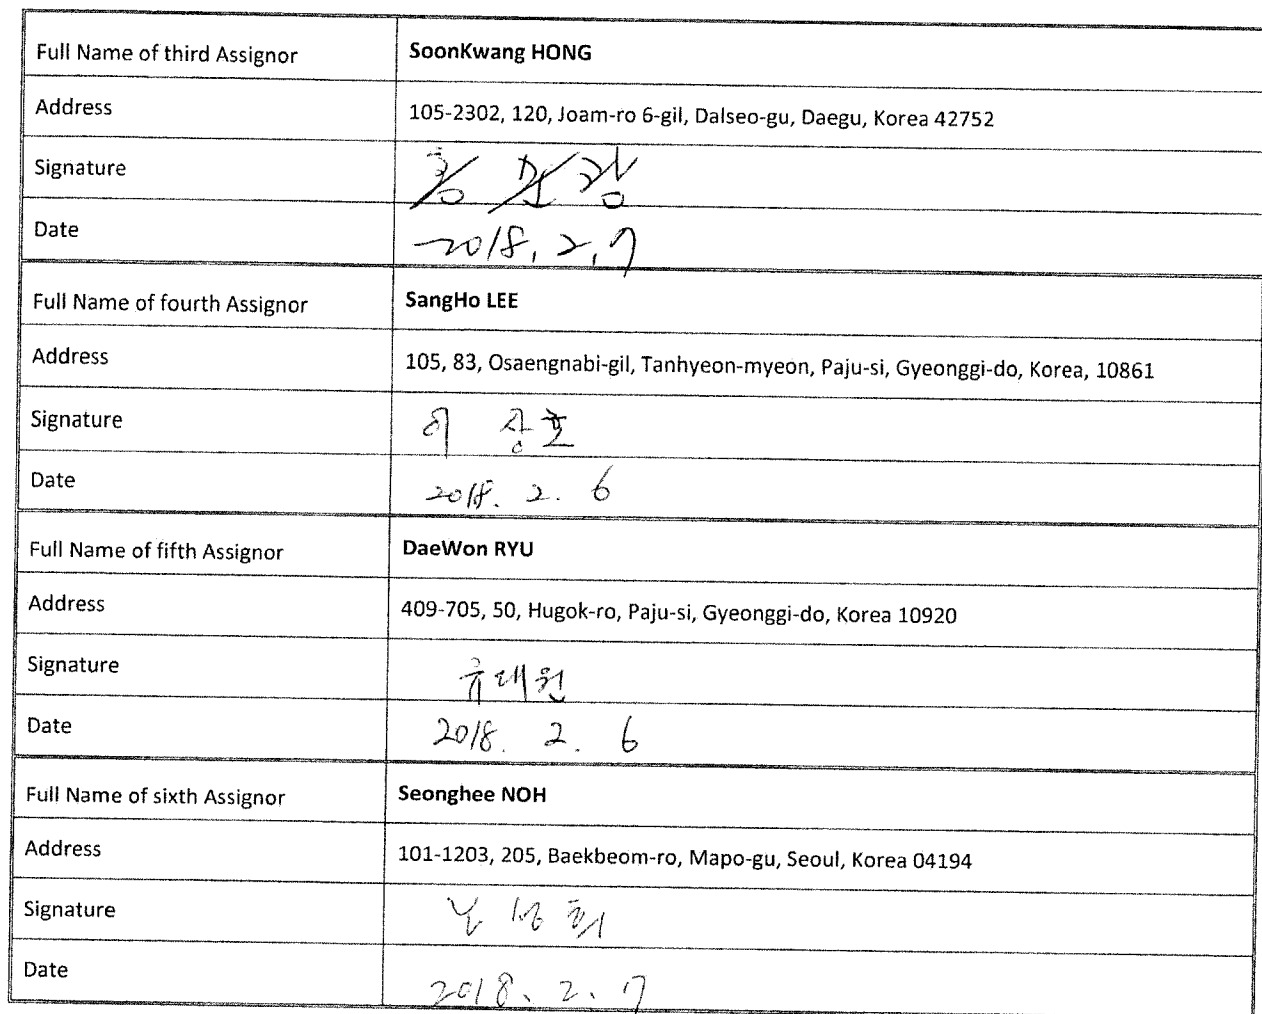 Full Name of third Assignor SoonKwang HONG
Address 105-2302, 120, Joam-ro 6-gil, Dalseo-gu, Daegu, Korea 42752
Signature 홍순광
Date 2018. 2. 7
Full Name of fourth Assignor SangHo LEE
Address 105, 83, Osaengnabi-gil, Tanhyeon-myeon, Paju-si, Gyeonggi-do, Korea, 10861
Signature 이 상호
Date 2018. 2. 6
Full Name of fifth Assignor DaeWon RYU
Address 409-705, 50, Hugok-ro, Paju-si, Gyeonggi-do, Korea 10920
Signature 류대원
Date 2018. 2. 6
Full Name of sixth Assignor Seonghee NOH
Address 101-1203, 205, Baekbeom-ro, Mapo-gu, Seoul, Korea 04194
Signature 노성희
Date 2018. 2. 7